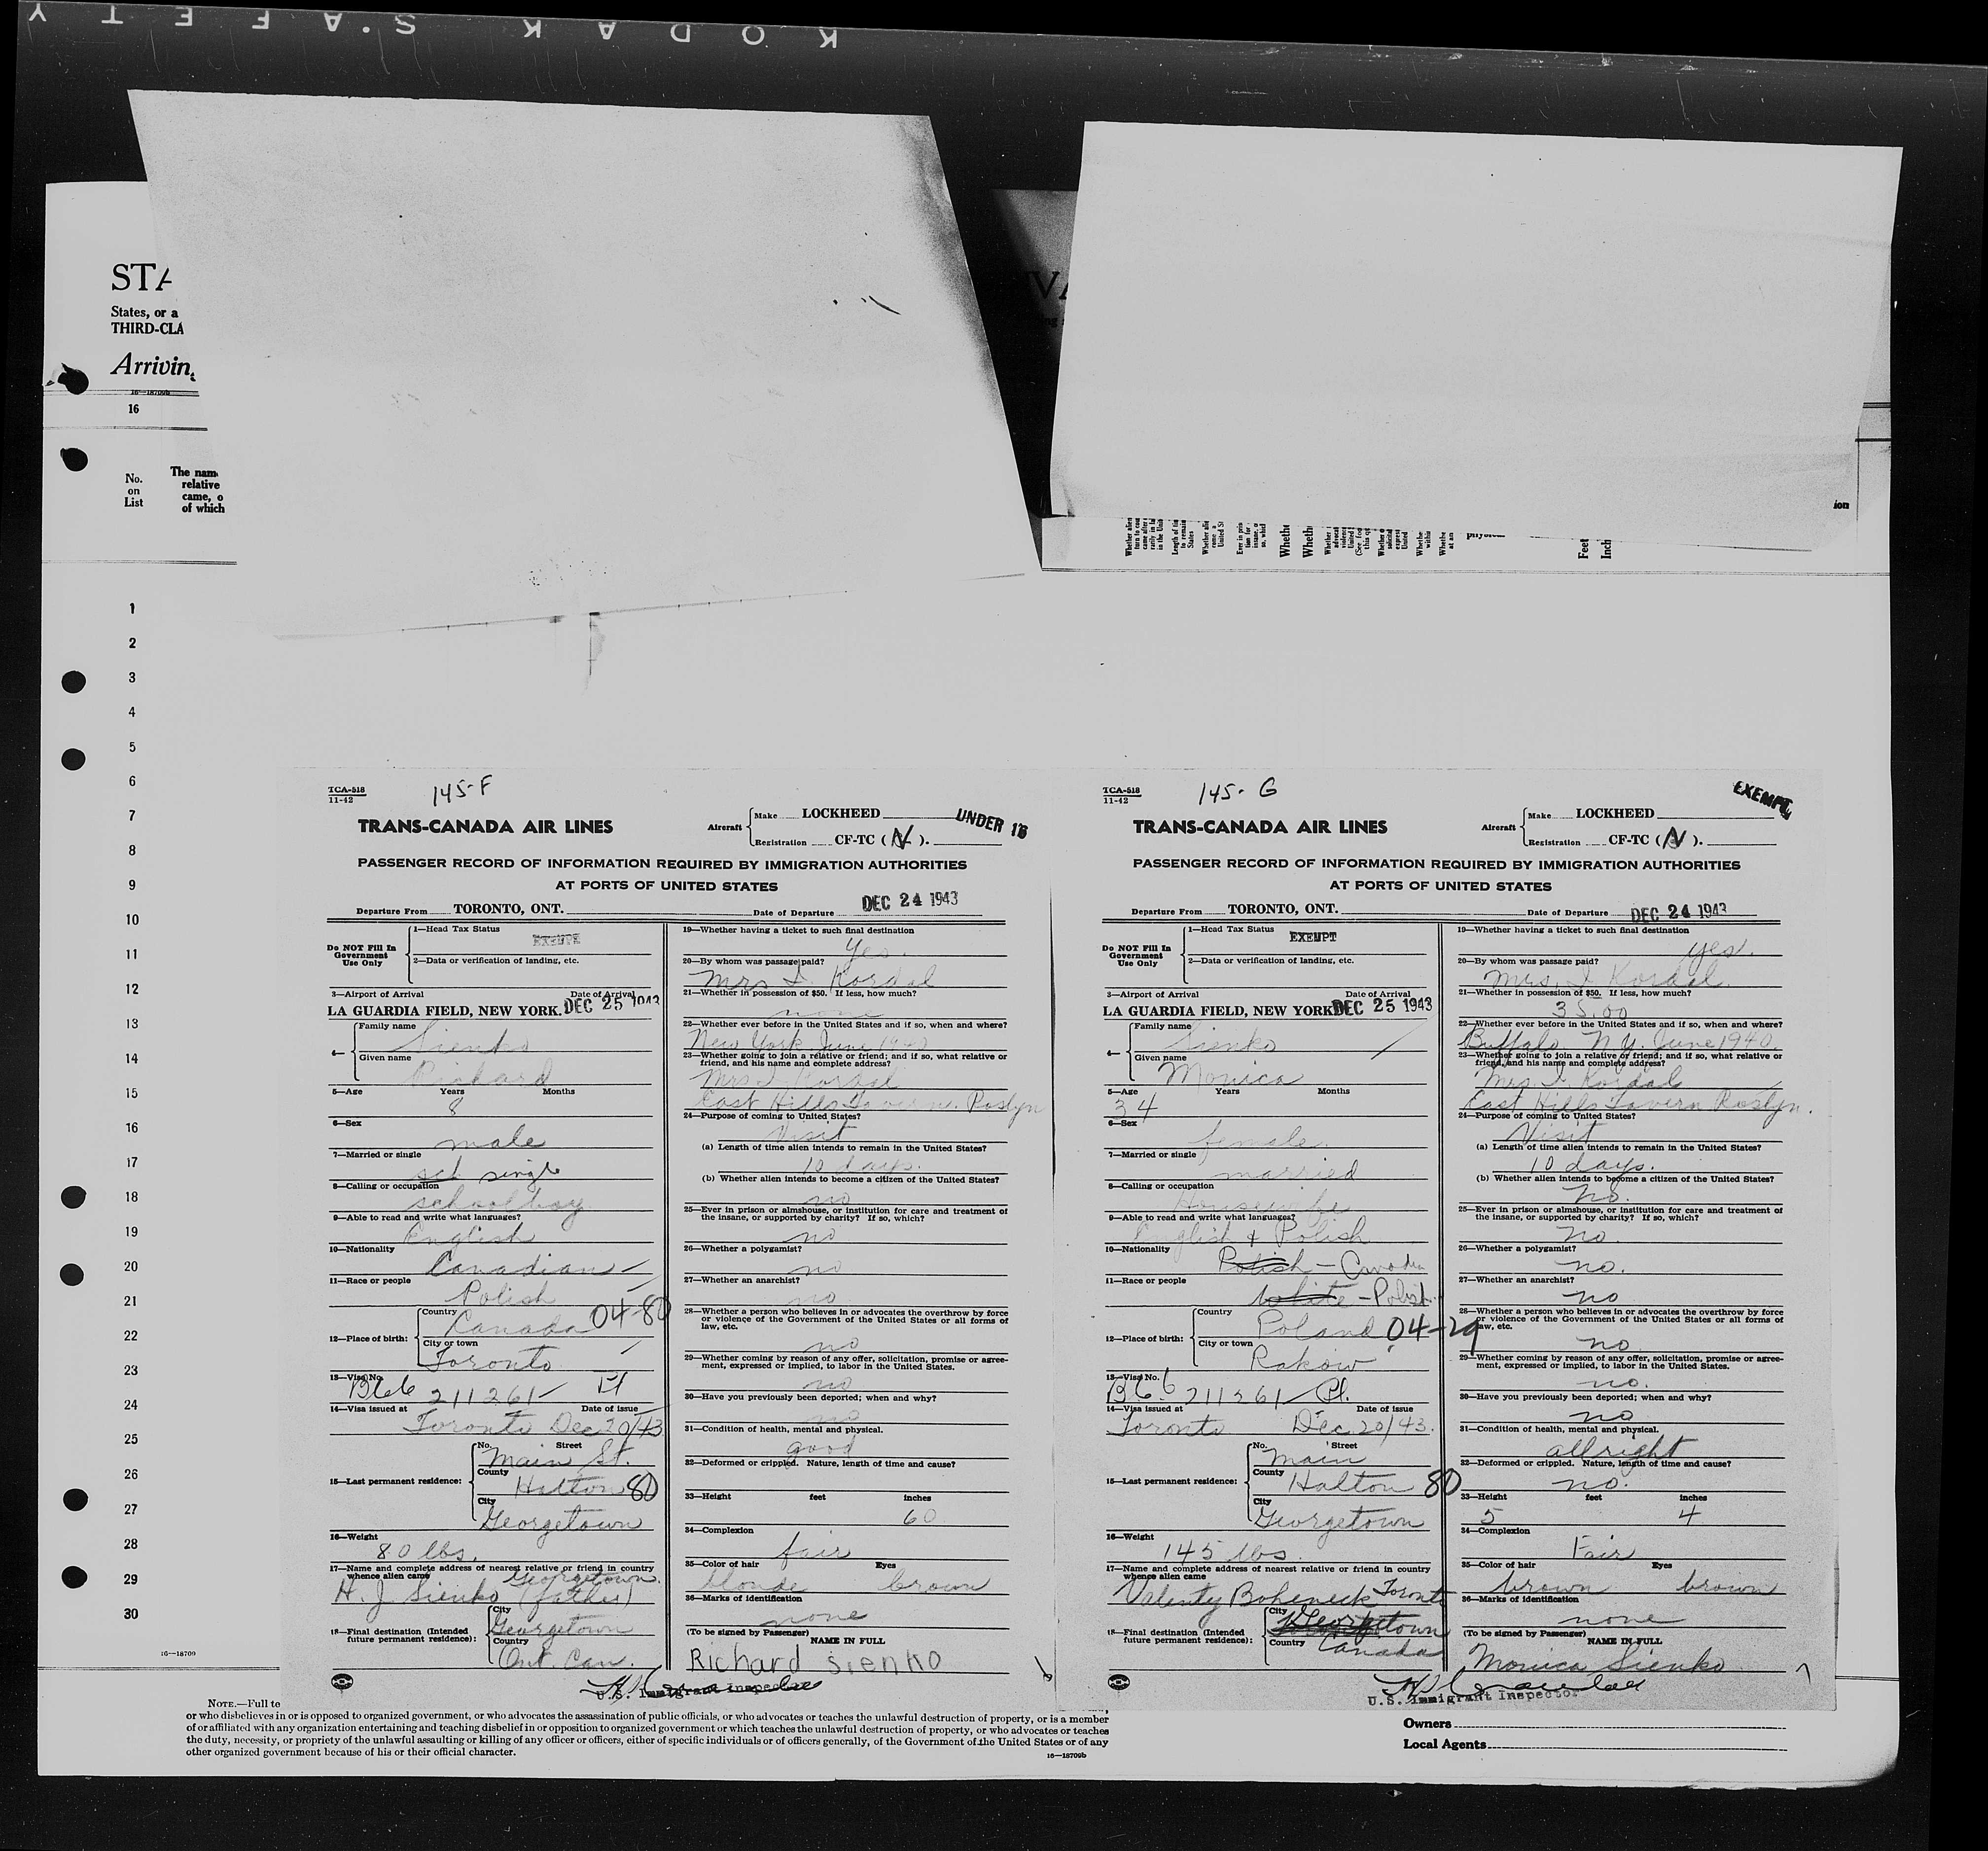 KODAK SAFETY
STA
States, or a
THIRD-CLA
Arriving
16—18709b
16
No.
on
List
The nam
relative
came, o
of which
ion
Feet
Inch
1
2
3
4
5
6
7
8
9
10
11
12
13
14
15
16
17
18
19
20
21
22
23
24
25
26
27
28
29
30
16—18709
TCA-518
11-42
145-F
TRANS-CANADA AIR LINES
Aircraft
Make LOCKHEED
UNDER 16
Registration CF-TC (N).
PASSENGER RECORD OF INFORMATION REQUIRED BY IMMIGRATION AUTHORITIES
AT PORTS OF UNITED STATES
Departure From TORONTO, ONT. Date of Departure DEC 24 1943
Do NOT Fill In
Government
Use Only
1—Head Tax Status
EXEMPT
2—Data or verification of landing, etc.
3—Airport of Arrival Date of Arrival
LA GUARDIA FIELD, NEW YORK. DEC 25 1943
4—
Family name
Sienko
Given name
Richard
5—Age Years Months
8
6—Sex
male
7—Married or single
sch single
8—Calling or occupation
schoolboy
9—Able to read and write what languages?
English
10—Nationality
Canadian
11—Race or people
Polish
12—Place of birth:
Country
Canada 04-80
City or town
Toronto
13—Visa No.
B66 211261
14—Visa issued at Date of issue
Toronto Dec 20/43
15—Last permanent residence:
No. Street
Main St.
County
Halton 80
City
Georgetown
16—Weight
80 lbs.
17—Name and complete address of nearest relative or friend in country
whence alien came Georgetown.
H. J. Sienko (father)
18—Final destination (Intended
future permanent residence):
City
Georgetown
Country
Ont. Can.
19—Whether having a ticket to such final destination
Yes.
20—By whom was passage paid?
Mrs I. Kordal
21—Whether in possession of $50. If less, how much?
none
22—Whether ever before in the United States and if so, when and where?
New York June 1940
23—Whether going to join a relative or friend; and if so, what relative or
friend, and his name and complete address?
Mrs. I. Kordal
East Hills Taverne. Roslyn
24—Purpose of coming to United States?
Visit
(a) Length of time alien intends to remain in the United States?
10 days.
(b) Whether alien intends to become a citizen of the United States?
no
25—Ever in prison or almshouse, or institution for care and treatment of
the insane, or supported by charity? If so, which?
no
26—Whether a polygamist?
no
27—Whether an anarchist?
no
28—Whether a person who believes in or advocates the overthrow by force
or violence of the Government of the United States or all forms of
law, etc.
no
29—Whether coming by reason of any offer, solicitation, promise or agree-
ment, expressed or implied, to labor in the United States.
no
30—Have you previously been deported; when and why?
no
31—Condition of health, mental and physical.
good
32—Deformed or crippled. Nature, length of time and cause?
33—Height feet inches
60
34—Complexion
fair
35—Color of hair Eyes
blonde brown
36—Marks of identification
none
(To be signed by Passenger)
NAME IN FULL
Richard Sienko
U.S. Immigrant Inspector
TCA-518
11-42
145-G
EXEMPT
TRANS-CANADA AIR LINES
Aircraft
Make LOCKHEED
Registration CF-TC (N).
PASSENGER RECORD OF INFORMATION REQUIRED BY IMMIGRATION AUTHORITIES
AT PORTS OF UNITED STATES
Departure From TORONTO, ONT. Date of Departure DEC 24 1943
Do NOT Fill In
Government
Use Only
1—Head Tax Status
EXEMPT
2—Data or verification of landing, etc.
3—Airport of Arrival Date of Arrival
LA GUARDIA FIELD, NEW YORK. DEC 25 1943
4—
Family name
Sienko
Given name
Monica
5—Age Years Months
34
6—Sex
female.
7—Married or single
married
8—Calling or occupation
Housewife
9—Able to read and write what languages?
English & Polish
10—Nationality
Polish - Canadian
11—Race or people
White - Polish
12—Place of birth:
Country
Poland 04-29
City or town
Rakow
13—Visa No.
B6.6 211261 Pl.
14—Visa issued at Date of issue
Toronto Dec 20/43.
15—Last permanent residence:
No. Street
Main
County
Halton 80
City
Georgetown
16—Weight
145 lbs.
17—Name and complete address of nearest relative or friend in country
whence alien came
Valenty Boheneck Toronto
18—Final destination (Intended
future permanent residence):
City
Georgetown
Country
Canada
19—Whether having a ticket to such final destination
yes.
20—By whom was passage paid?
Mrs. I Kordal.
21—Whether in possession of $50. If less, how much?
35.00
22—Whether ever before in the United States and if so, when and where?
Buffalo N.Y. June 1940.
23—Whether going to join a relative or friend; and if so, what relative or
friend, and his name and complete address?
Mrs. I. Kordal
East Hills Tavern Roslyn.
24—Purpose of coming to United States?
Visit
(a) Length of time alien intends to remain in the United States?
10 days.
(b) Whether alien intends to become a citizen of the United States?
No.
25—Ever in prison or almshouse, or institution for care and treatment of
the insane, or supported by charity? If so, which?
no.
26—Whether a polygamist?
no.
27—Whether an anarchist?
no
28—Whether a person who believes in or advocates the overthrow by force
or violence of the Government of the United States or all forms of
law, etc.
no.
29—Whether coming by reason of any offer, solicitation, promise or agree-
ment, expressed or implied, to labor in the United States.
no.
30—Have you previously been deported; when and why?
no
31—Condition of health, mental and physical.
allright
32—Deformed or crippled. Nature, length of time and cause?
no.
33—Height feet inches
5 4
34—Complexion
Fair
35—Color of hair Eyes
brown brown
36—Marks of identification
none
(To be signed by Passenger)
NAME IN FULL
Monica Sienko
U.S. Immigrant Inspector
NOTE.—Full te
or who disbelieves in or is opposed to organized government, or who advocates the assassination of public officials, or who advocates or teaches the unlawful destruction of property, or is a member
of or affiliated with any organization entertaining and teaching disbelief in or opposition to organized government or which teaches the unlawful destruction of property, or who advocates or teaches
the duty, necessity, or propriety of the unlawful assaulting or killing of any officer or officers, either of specific individuals or of officers generally, of the Government of the United States or of any
other organized government because of his or their official character.
16—18709b
Owners
Local Agents